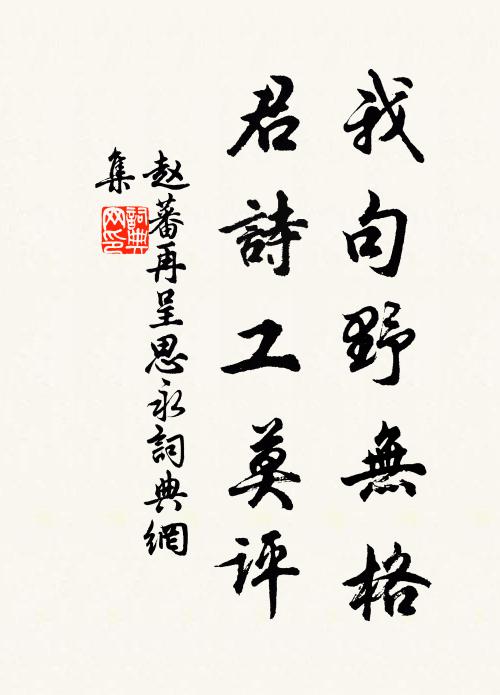 我句野無格
君詩工莫評
赵蕃再呈思永詞典網
集
詞典网印